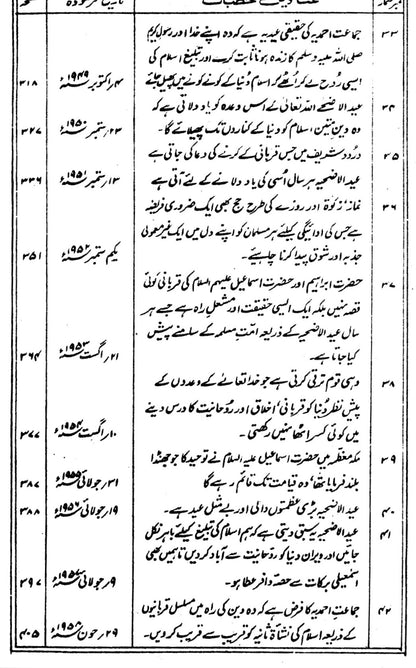 ۳۳ جماعت احمدیہ کی حقیقی عید یہ ہے کہ وہ اپنے خدا اور رسول کریم
صلی اللہ علیہ وسلم کا زندہ ہونا ثابت کرے اور تبلیغ اسلام کی
ایسی رُوح لے کر اُٹھے کہ اسلام دُنیا کے کونے کونے میں پھیل جائے ۴؍اکتوبر ۱۹۴۹ء ۳۱۸
۳۴ عید الاضحیہ اللہ تعالیٰ کے اس وعدہ کو یاد دلاتی ہے کہ
وہ دینِ متین اسلام کو دنیا کے کناروں تک پھیلائے گا۔ ۲۳؍ستمبر ۱۹۵۰ء ۳۲۷
۳۵ درود شریف میں جس قربانی کے کرنے کی دعا کی جاتی ہے
عید الاضحیہ ہر سال اُسی کی یاد دلانے کے لئے آتی ہے ۱۳؍ستمبر ۱۹۵۱ء ۳۳۶
۳۶ نماز زکوٰۃ اور روزے کی طرح حج بھی ایک ضروری فریضہ
ہے جس کی ادائیگی کیلئے ہر مسلمان کو اپنے دل میں ایک غیر معمولی
جذبہ اور شوق پیدا کرنا چاہیے۔ یکم ستمبر ۱۹۵۲ء ۳۵۱
۳۷ حضرت ابراہیم اور حضرت اسماعیل علیہم السلام کی قربانی کوئی
قصہ نہیں بلکہ ایک ایسی حقیقت اور مشعلِ راہ ہے جسے ہر
سال عید الاضحیہ کے ذریعہ امتِ مسلمہ کے سامنے پیش
کیا جاتا ہے۔ ۲۱؍اگست ۱۹۵۳ء ۳۶۴
۳۸ وہی قوم ترقی کرتی ہے جو خدا تعالےٰ کے وعدوں کے
پیش نظر دُنیا کو قربانی، اخلاق اور رُوحانیت کا درس دینے
میں کوئی کسر اٹھا نہیں رکھتی۔ ۱۰؍اگست ۱۹۵۴ء ۳۷۷
۳۹ مکہ معظمہ میں حضرت اسماعیل علیہ السلام نے توحید کا جو جھنڈا
بلند فرمایا تھا، وہ قیامت تک قائم رہے گا ۳۱؍جولائی ۱۹۵۵ء ۳۸۷
۴۰ عید الاضحیہ بڑی عظمتوں والی اور بے مثل عید ہے۔ ۱۹؍جولائی ۱۹۵۶ء ۳۸۸
۴۱ عید الاضحیہ یہ سبق دیتی ہے کہ ہم اسلام کی تبلیغ کیلئے باہر نکل
جائیں اور ویران دنیا کو روحانیت سے آباد کر دیں تا ہمیں بھی
اسمٰعیلی برکات سے حصہ وافر عطا ہو۔ ۹؍جولائی ۱۹۵۷ء ۳۹۷
۴۲ جماعت احمدیہ کا فرض ہے کہ وہ دین کی راہ میں مسلسل قربانیوں
کے ذریعہ اسلام کی نشأۃ ثانیہ کو قریب سے قریب کر دیں۔ ۲۹؍جون ۱۹۵۸ء ۴۰۵